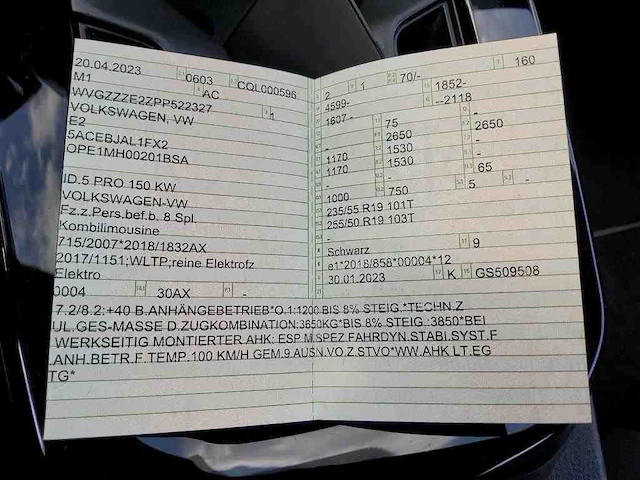 20.04.2023 0603 CQL000596
M1 AC
WVGZZZE2ZPP522327 1
VOLKSWAGEN, VW
E2
5ACEBJAL1FX2
OPE1MH00201BSA
ID.5 PRO 150 KW
VOLKSWAGEN-VW
Fz.z.Pers.bef.b. 8 Spl.
Kombilimousine
715/2007*2018/1832AX
2017/1151;WLTP;reine Elektrofz
Elektro
0004 30AX -
2 1 70/- 160
4599- 1852-
1607- --2118
- 75 -
- 2650 2650
1170 1530 -
1170 1530 -
- - 65
1000 750 5 -
235/55 R19 101T
255/50 R19 103T
-
Schwarz 9
e1*2018/858*00004*12
30.01.2023 K GS509508
7.2/8.2:+40 B.ANHÄNGEBETRIEB*O.1:1200 BIS 8% STEIG.*TECHN.Z
UL.GES-MASSE D.ZUGKOMBINATION:3650KG*BIS 8% STEIG.:3850*BEI
WERKSEITIG MONTIERTER AHK: ESP M.SPEZ.FAHRDYN.STABI.SYST.F
.ANH.BETR.F.TEMP.100 KM/H GEM.9.AUSN.VO.Z.STVO*WW.AHK LT.EG
TG*